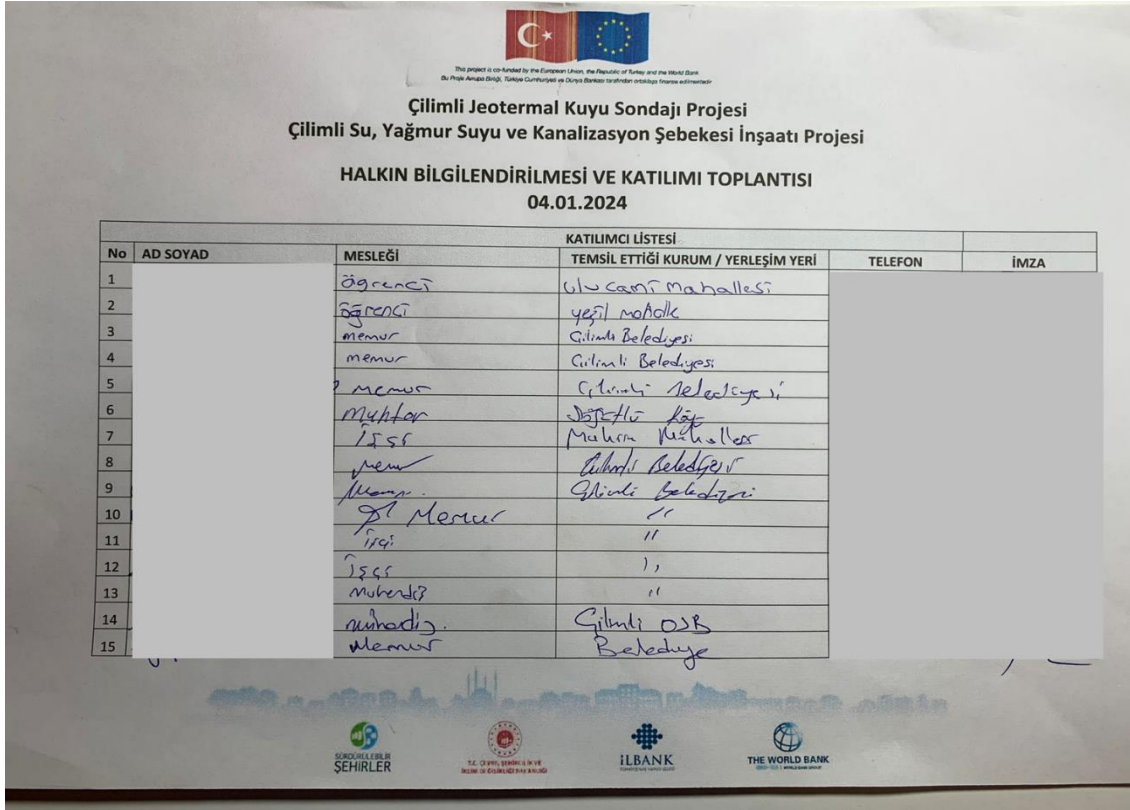 This project is co-funded by the European Union, the Republic of Turkey and the World Bank
Bu Proje Avrupa Birliği, Türkiye Cumhuriyeti ve Dünya Bankası tarafından ortaklaşa finanse edilmektedir
Çilimli Jeotermal Kuyu Sondajı Projesi
Çilimli Su, Yağmur Suyu ve Kanalizasyon Şebekesi İnşaatı Projesi
HALKIN BİLGİLENDİRİLMESİ VE KATILIMI TOPLANTISI
04.01.2024
KATILIMCI LİSTESİ
No AD SOYAD MESLEĞİ TEMSİL ETTİĞİ KURUM / YERLEŞİM YERİ TELEFON İMZA
1 öğrenci ulu cami mahallesi
2 öğrenci yeşil
3 memur Çilimli Belediyesi
4 memur Çilimli Belediyesi
5 memur Çilimli Belediyesi
6 Muhtar
7 İşçi
8 memur Çilimli Belediyesi
9 Çilimli Belediyesi
10 Memur "
11 işçi "
12 İşçi "
13 Muhendis "
14 Çilimli OSB
15 Memur Belediye
SÜRDÜRÜLEBİLİR
ŞEHİRLER
T.C. ÇEVRE, ŞEHİRCİLİK VE
İKLİM DEĞİŞİKLİĞİ BAKANLIĞI
İLBANK
THE WORLD BANK